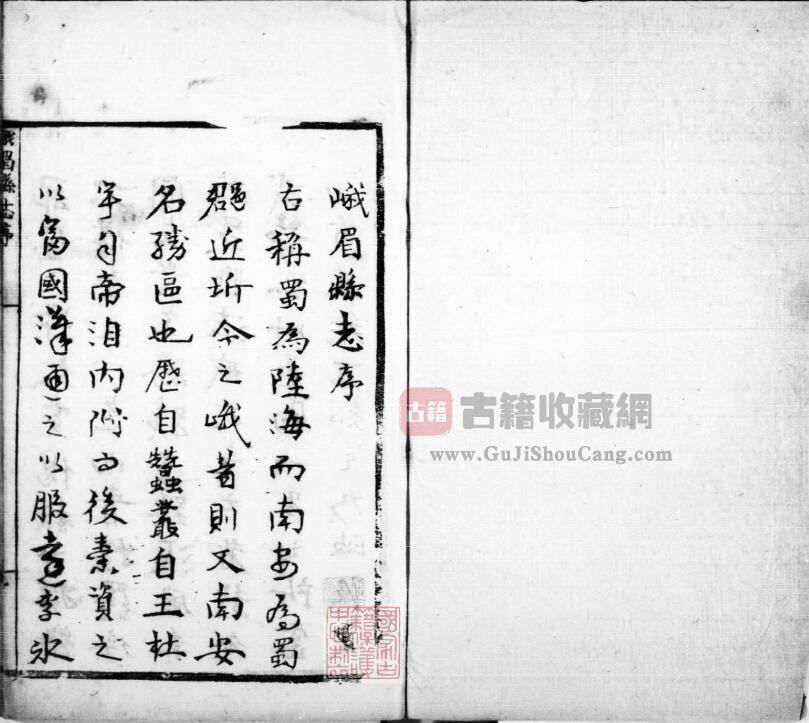 峨眉縣志序
古稱蜀為陸海而南安為蜀
近圻今之峨昔則又南安
名勝區也歷自蠶叢自王杜
宇自帝洎內附而後秦資之
以富國漢通之以服遠李冰
峨眉縣志序
古籍
古籍收藏網
www.GuJiShouCang.com
國家古
籍保護
中心